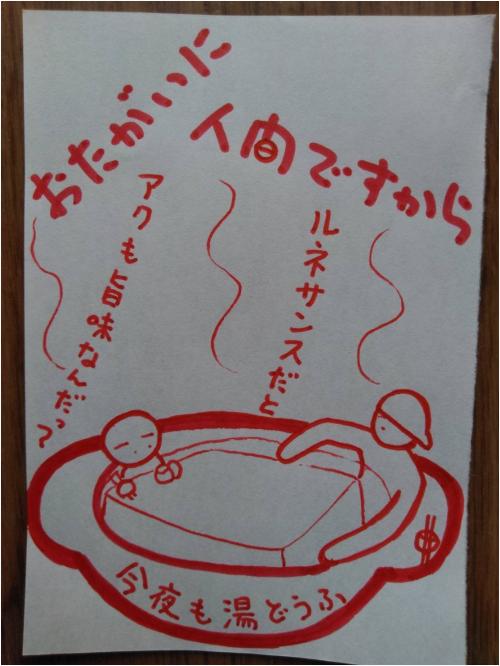 おたがいに
人間ですから
ルネサンスだと
アクも旨味なんだっ?
今夜も湯どうふ